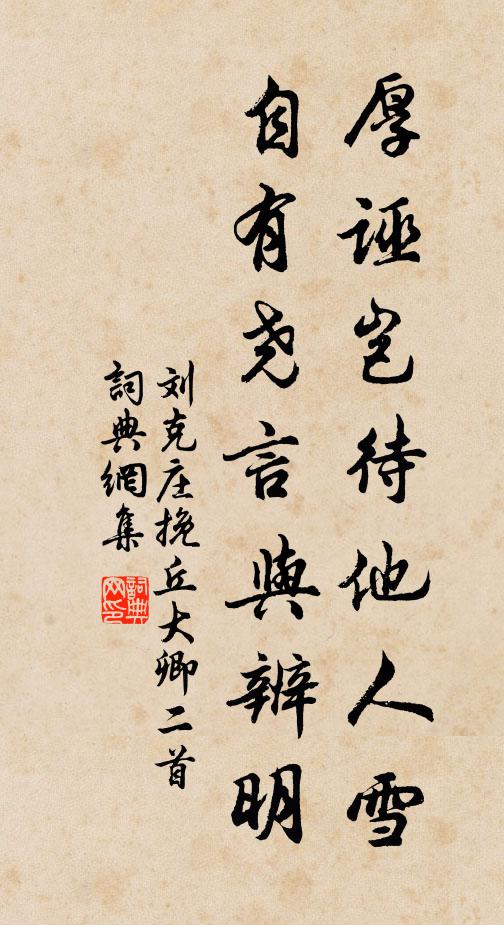 厚诬岂待他人雪
自有尧言與辨明
刘克庄挽丘大卿二首
詞典網集
詞典
网印